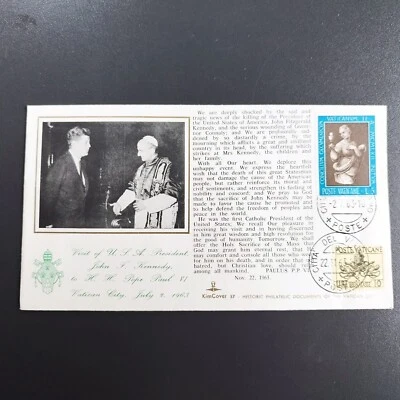 We are deeply shocked by the sad and
tragic news of the killing of the President of
the United States of America, John Fitzgerald
Kennedy, and the serious wounding of Gover-
nor Connaly; and We are profoundly sad-
dened by so dastardly a crime, by the
mourning which affects a great and civilized
country in its head, by the suffering which
strikes at Mrs Kennedy, the children and
her family.
With all Our heart, We deplore this
unhappy event. We express the heartfelt
wish that the death of this great Statesman
may not damage the cause of the American
people, but rather reinforce its moral and
civil sentiments, and strengthen its feeling of
nobility and concord; and We pray to God that
the sacrifice of John Kennedy may be
made to favor the cause he promoted and
to help defend the freedom of peoples and
peace in the world.
He was the first Catholic President of the
United States. We recall Our pleasure in
receiving his visit and in having discerned
in him great wisdom and high resolution for
the good of humanity. Tomorrow, We shall
offer the Holy Sacrifice of the Mass that
God may grant him eternal rest, that He
may comfort and console all those who weep
for him on his death, and in order that not
hatred, but Christian love, should reign
among all mankind. PAULUS P.P. VI
Nov. 22, 1963
Visit of U.S.A. President
John F. Kennedy,
to H. H. Pope Paul VI
Vatican City, July 2, 1963
KimCover 37 - HISTORIC PHILATELIC DOCUMENTS OF THE
VATICANUM II
POSTE VATICANE L. 5
POSTE
POSTE VATICANE
CITTA' DEL
22.11